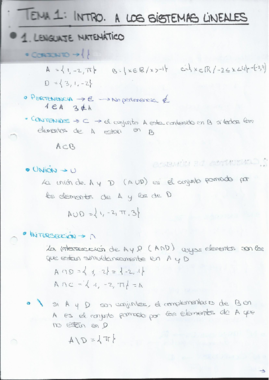 TEMA 1: INTRO. A LOS SISTEMAS LINEALES
1. LENGUAJE MATEMÁTICO
CONJUNTO → { }
A = {1, -2, π} B = {x∈ℝ / x>1}
D = {3, 1, -2}
PERTENENCIA → ∈ No pertenencia ∉
1 ∈ A 3 ∉ A
CONTENIDO → ⊂ → el conjunto A está contenido en B si todos los
elementos de A están en B
A ⊂ B
UNIÓN → ∪
La unión de A y D (A∪D) es el conjunto formado por
los elementos de A y los de D.
A∪D = {1, -2, π, 3}
INTERSECCIÓN → ∩
La intersección de A y D (A∩D) cuyos elementos son los
que están simultáneamente en A y D
A∩D = {1, -2} = {-2, 1}
A∩C = {1, -2, π} = A
\ si A y D son conjuntos, el complementario de B en
A es el conjunto formado por los elementos de A que
no están en D
A\D = {π}